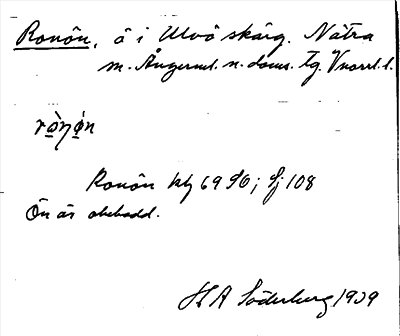 Ronön, ö i Ulvö skärg. Nätra
m. Ångerml. n. doms. tg. Vnorrl. l.
Ronön kbl 69 SO; Sj 108
Ön är obebodd.
H A Söderberg 1939